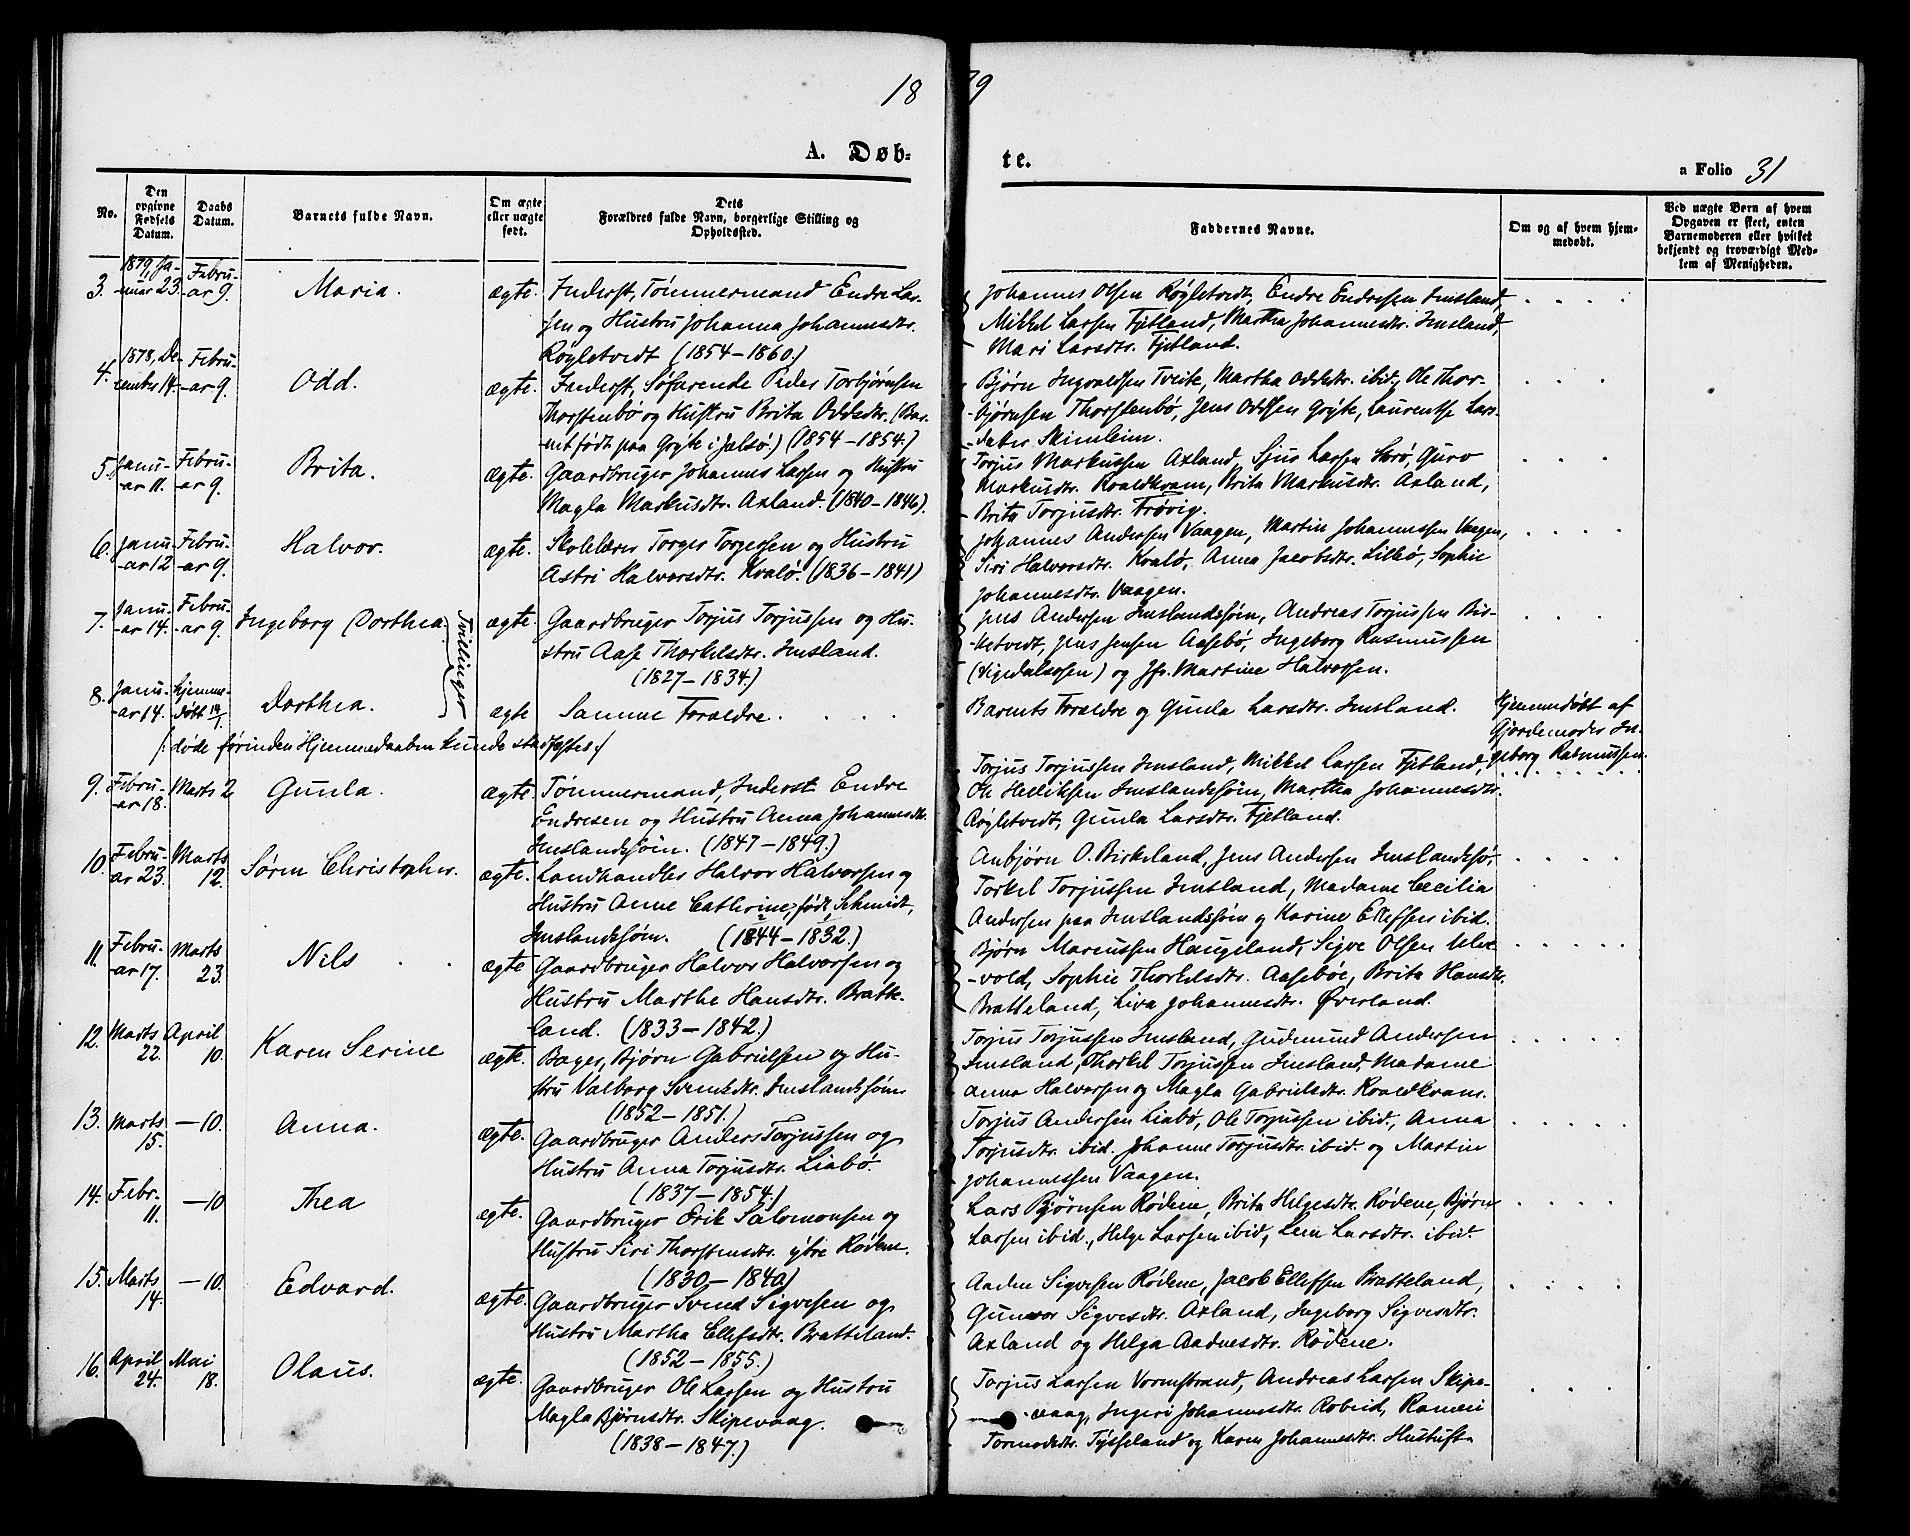 1879
A. Døb-te.
a Folio 31
No.
Den opgivne Fødsels Datum.
Daabs Datum.
Barnets fulde Navn.
Om ægte eller uægte født.
Dets Forældres fulde Navn, borgerlige Stilling og Opholdssted.
Faddernes Navne.
Om og af hvem hjemmedøbt.
Ved uægte Børn af hvem Opgaven er skeet, enten Barnemoderen eller hvilket bekjendt og troværdigt Medlem af Menigheden.
3. 1879, Januar 23. Februar 9. Maria. ægte. Inderst, Tømmermand Endre Lar-
sen og Hustru Johanna Johannesdtr.
Røgletvedt (1854-1860.)
Johannes Olsen Røgletvedt, Endre Endresen Imsland,
Mikkel Larsen Fjetland, Martha Johannesdtr. Imsland,
Mari Larsdtr. Fjetland.
4. 1878, December 14. Februar 9. Odd. ægte. Inderst, Søfarende Peder Torbjørnsen
Thorstenbø og Hustru Brita Oddsdtr. (Bar-
net født paa Grÿte i Jelsø.) (1854-1854.)
Bjørn Ingvaldsen Tveite, Martha Oddsdtr. ibid., Ole Thor-
bjørnsen Thorstenbø, Jens Oddsen Grÿte, Laurentse Lars-
datter
5. Januar 11. Februar 9. Brita. ægte. Gaardbruger Johannes Larsen og Hustru
Magla Markusdtr. Axland. (1840-1846).
Torjus Markussen Axland, Sjur Larsen Guro
Markusdtr. Roaldkvam, Brita Markusdtr. Axland,
Brita Torjusdtr. Frøvig.
6. Januar 12. Februar 9. Halvor. ægte. Skolelærer Torger Torgersen og Hustru
Astri Halvorsdtr. Kvalø. (1836-1841)
Johannes Andersen Vaagen, Martin Johannessen Vaagen,
Siri Halvorsdtr. Kvalø, Anna Jacobsdtr. Lillø, Sophie
Johannesdtr. Vaagen.
7. Januar 14. Februar 9. Ingeborg Dorthea. Tvillinger ægte. Gaardbruger Torjus Torjussen og Hu-
stru Aase Thorkelsdtr. Imsland.
(1827-1834.)
Jens Andersen Imslandssøin, Andreas Torjussen Bir-
ketvedt, Jens Jensen Aasebø, Ingeborg Rasmussen
og Jfr. Martine Halvorsen.
8. Januar 14. Hjemmedøbt 14/1. Dorthea. ægte Samme Forældre.
(: døde førinden Hjemmedaaben kunde stadfæstes:)
Barnets Forældre og Gunla Larsdtr. Imsland.
Hjemmedøbt af
Gjordemoder In-
geborg Rasmussen.
9. Februar 18. Marts 2 Gunla. ægte. Tømmermand, Inderst Endre
Endresen og Hustru Anna Johannesdtr.
Imslandssøin. (1847-1849.)
Torjus Torjussen Imsland, Mikkel Larsen Fjetland,
Ole Henriksen Imslandssøin, Martha Johannesdtr.
Røgletvedt, Gunla Larsdtr. Fjetland.
10. Februar 23. Marts 12. Søren Christopher. ægte. Landhandler Halvor Halvorsen og
Hustru Anne Cathrine, født Schmidt,
Imslandssøin. (1844-1832.)
Anbjørn O. Birkeland, Jens Andersen Imslandssø.
Torkel Torjussen Imsland, Madame Cecilia
Andersen paa Imslandssøin og Karine Ellefsen ibid.
11. Februar 17. Marts 23. Nils ægte Gaardbruger Halvor Halvorsen og
Hustru Marthe Hansdtr. Bratte-
land. (1833-1842.)
Bjørn Marcussen Haugeland, Sigve Olsen Ulve-
vold, Sophie Thorkelsdtr. Aasebøe, Brita Hansdtr.
Bratteland, Liva Johannesdtr. Øverland.
12. Marts 22. April 10. Karen Serine ægte. Bager, Bjørn Gabrielsen og Hu-
stru Valborg Svendsdtr. Imslandssøin
(1852-1851.)
Torjus Torjussen Imsland, Gudmund Andersen
Imsland, Thorkel Torjussen Imsland, Madame
Anna Halvorsen og Magla Gabrielsdtr. Roaldkvam.
13. Marts 15. —10. Anna. ægte. Gaardbruger Anders Torjussen og
Hustru Anna Torjusdtr. Liabø.
(1837-1854.)
Torjus Andersen Liabø, Ole Torjussen ibid., Anna
Torjusdtr. ibid. Johanne Torjusdtr. ibid. og Martin
Johannessen Vaagen.
14. Febr. 11. —10 Thea ægte. Gaardbruger Erik Salomonsen og
Hustru Siri Thorstensdtr. ÿtre Rødene.
(1830-1840)
Lars Bjørnsen Rødene, Brita Helgesdtr. Rødene, Bjørn
Larsen ibid., Helge Larsen ibid, Lene Larsdtr. ibid.
15. Marts 14. —10. Edvard. ægte. Gaardbruger Svend Sigvesen og
Hustru Martha Ellefsdtr. Bratteland.
(1852-1855.)
Aaden Sigvesen Rødene, Jacob Ellefsen Bratteland,
Gunvor Sigvesdtr. Axland, Ingeborg Sigvesdtr.
Axland og Helga Aadnesdtr. Rødene.
16. April 24. Mai 18. Olaus. ægte. Gaardbruger Ole Larsen og Hustru
Magla Bjørnsdtr. Skipevaag.
(1838-1847.)
Torjus Larsen Vormestrand, Andreas Larsen Skipe-
vaag, Ingeri Johannesdtr. Robeid,
Tormodsdtr. Tÿsseland og Karen Johannesdtr.